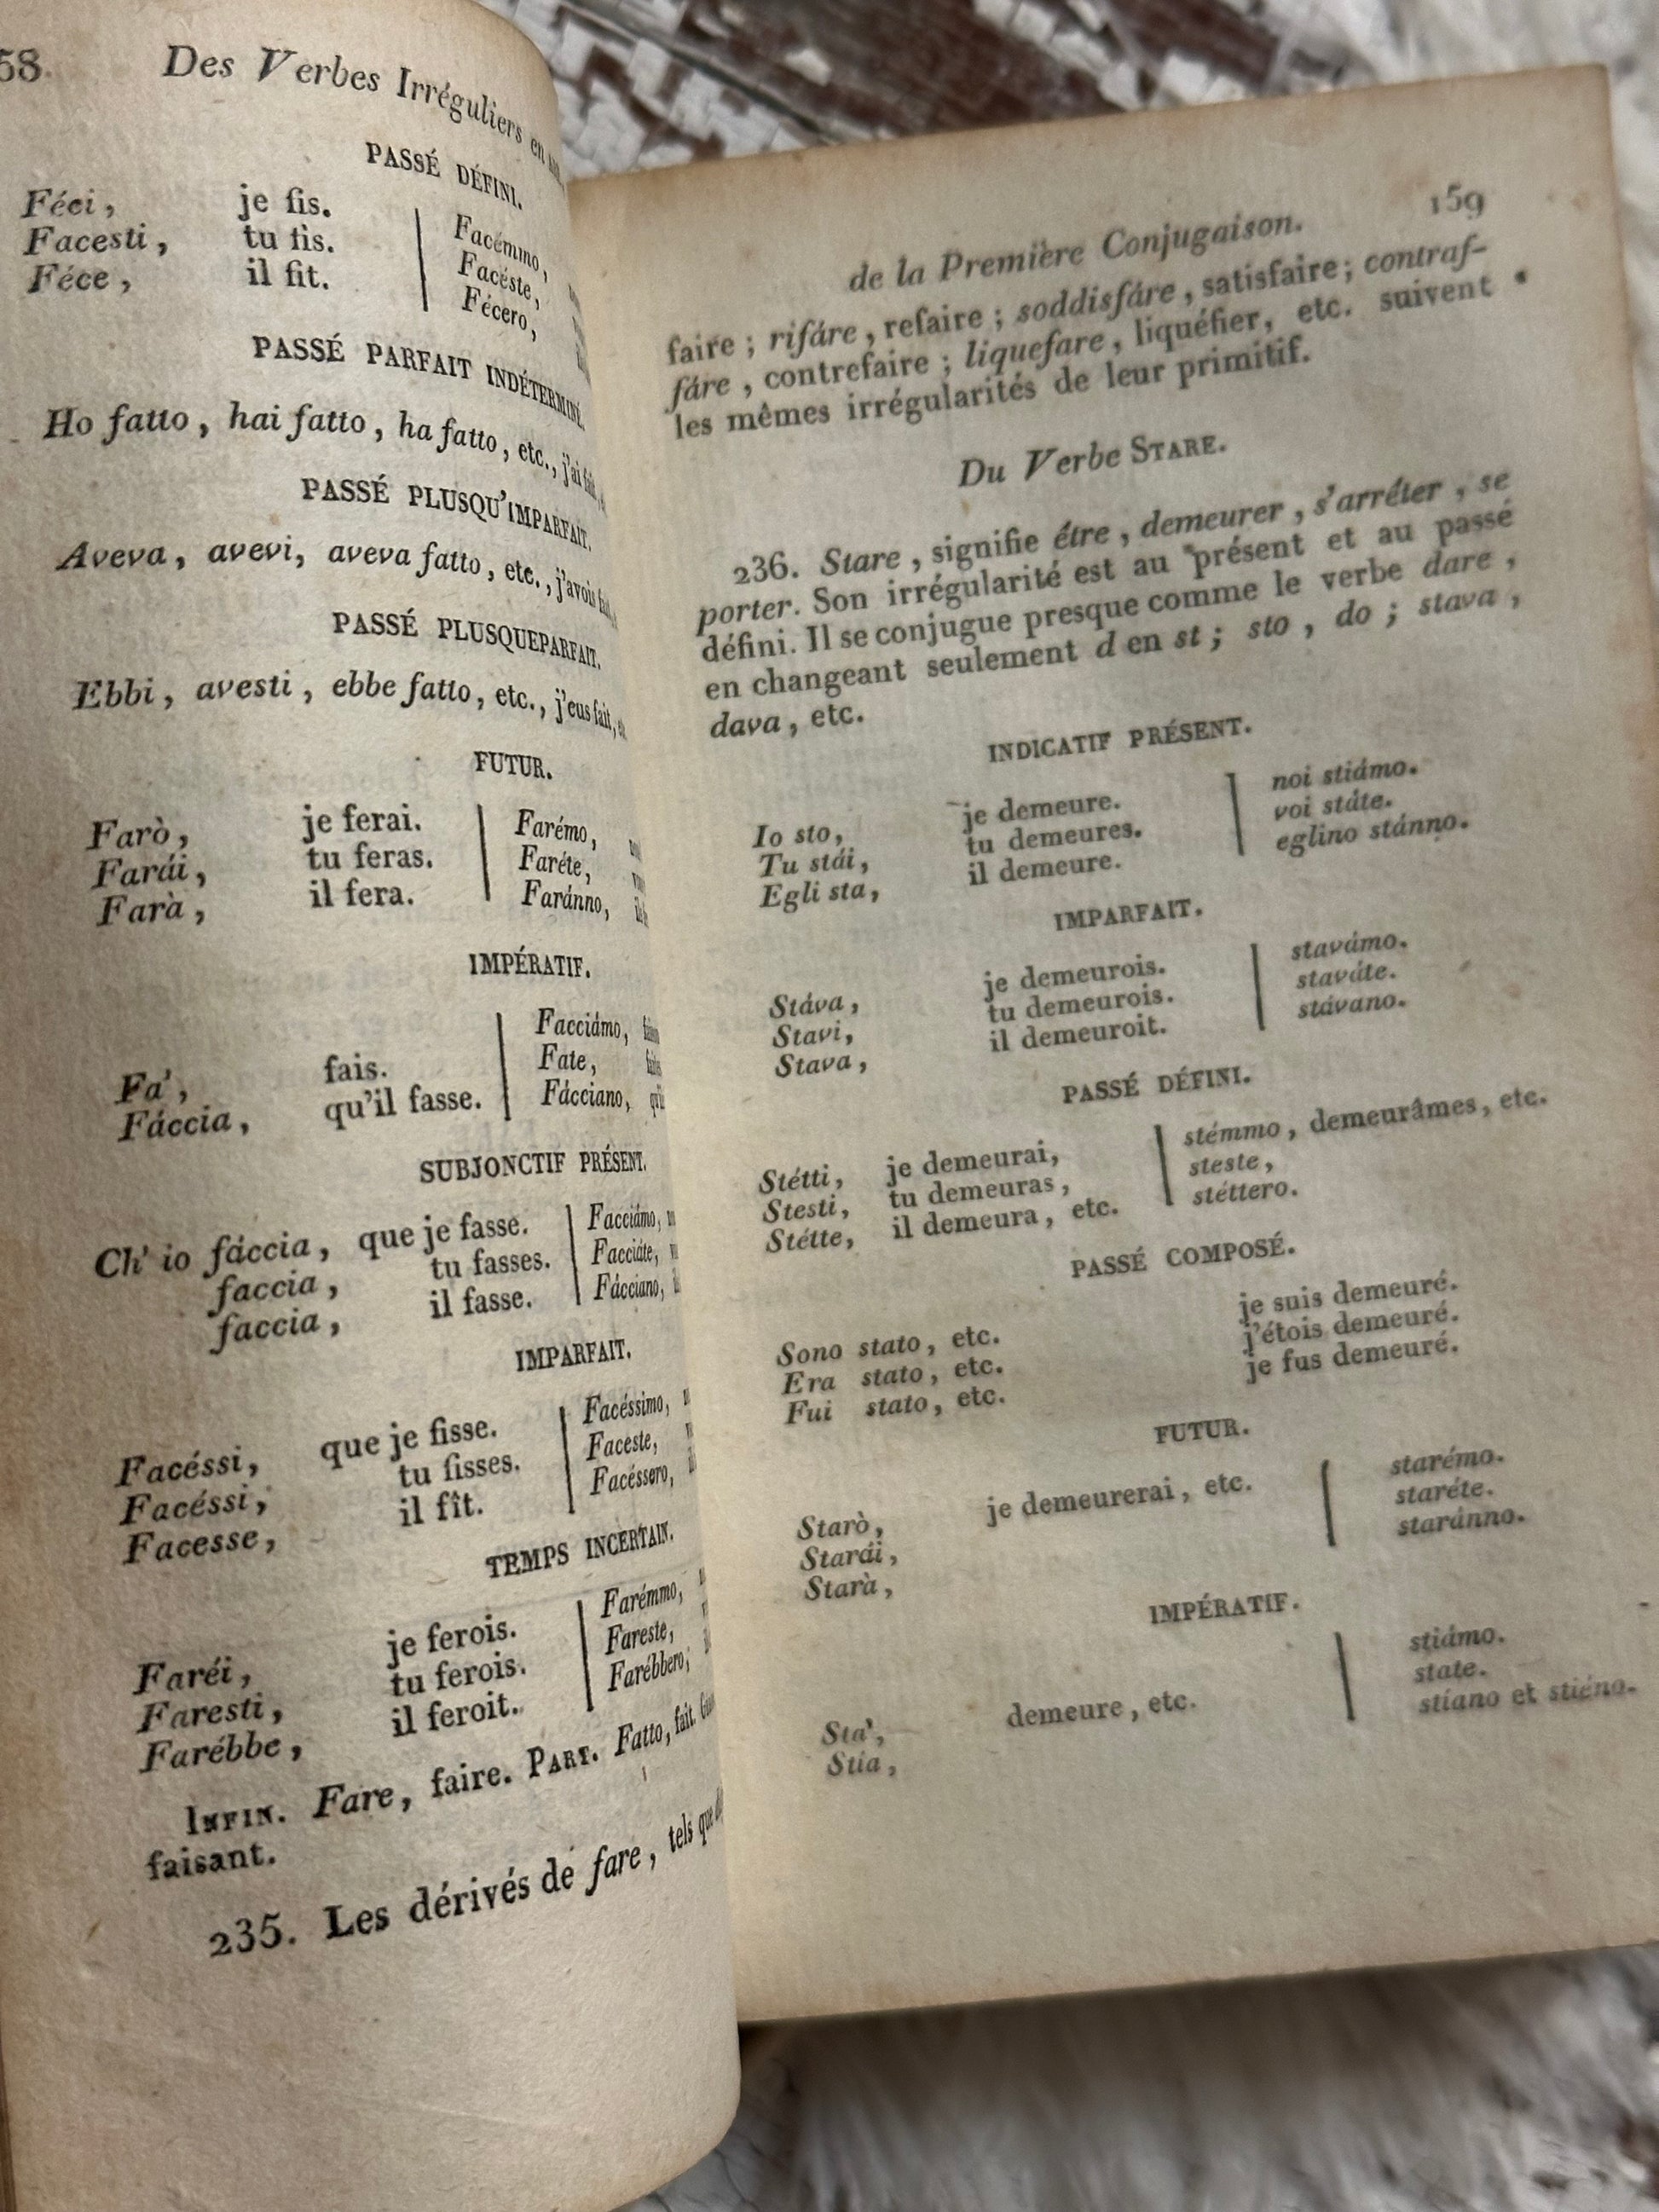 58 Des Verbes Irréguliers en
PASSÉ DÉFINI.
Féci, je fis. Facémmo,
Facesti, tu fis. Facéste,
Féce, il fit. Fécero,
PASSÉ PARFAIT INDÉTERMINÉ.
Ho fatto, hai fatto, ha fatto, etc., j'ai fait,
PASSÉ PLUSQU'IMPARFAIT.
Aveva, avevi, aveva fatto, etc., j'avois fait,
PASSÉ PLUSQUEPARFAIT.
Ebbi, avesti, ebbe fatto, etc., j'eus fait,
FUTUR.
Farò, je ferai. Farémo,
Farái, tu feras. Faréte,
Farà, il fera. Faránno,
IMPÉRATIF.
Facciámo,
Fa', fais. Fate,
Fáccia, qu'il fasse. Fácciano,
SUBJONCTIF PRÉSENT.
Ch' io fáccia, que je fasse. Facciámo,
faccia, tu fasses. Facciáte,
faccia, il fasse. Fácciano,
IMPARFAIT.
Facéssi, que je fisse. Facéssimo,
Facéssi, tu fisses. Faceste,
Facesse, il fît. Facéssero,
TEMPS INCERTAIN.
Faréi, je ferois. Farémmo,
Faresti, tu ferois. Fareste,
Farébbe, il feroit. Farébbero,
INFIN. Fare, faire. PART. Fatto, fait.
faisant.
235. Les dérivés de fare, tels que
de la Première Conjugaison. 159
faire; rifáre, refaire; soddisfáre, satisfaire; contraf-
fáre, contrefaire; liquefare, liquéfier, etc. suivent
les mêmes irrégularités de leur primitif.
Du Verbe STARE.
236. Stare, signifie étre, demeurer, s'arréter, se
porter. Son irrégularité est au présent et au passé
défini. Il se conjugue presque comme le verbe dare,
en changeant seulement d en st; sto, do; stava,
dava, etc.
INDICATIF PRÉSENT.
Io sto, je demeure. noi stiámo.
Tu stái, tu demeures. voi státe.
Egli sta, il demeure. eglino stánno.
IMPARFAIT.
Stáva, je demeurois. stavámo.
Stavi, tu demeurois. staváte.
Stava, il demeuroit. stávano.
PASSÉ DÉFINI.
Stétti, je demeurai, stémmo, demeurâmes, etc.
Stesti, tu demeuras, steste,
Stétte, il demeura, etc. stéttero.
PASSÉ COMPOSÉ.
Sono stato, etc. je suis demeuré.
Era stato, etc. j'étois demeuré.
Fui stato, etc. je fus demeuré.
FUTUR.
Starò, je demeurerai, etc. starémo.
Starái, staréte.
Starà, staránno.
IMPÉRATIF.
stiámo.
Sta', demeure, etc. state.
Stía, stíano et stiéno.